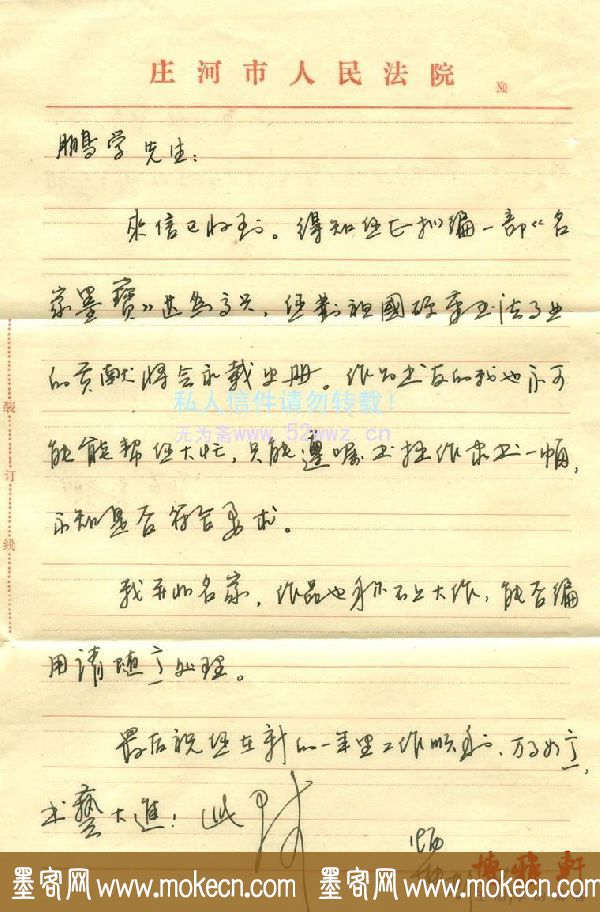 庄河市人民法院 №
鹏学先生:
来信已收到。得知您正拟编一部《名
家墨宝》甚为高兴,您对祖國硬筆书法事业
的贡献将会永载史册。作为书友的我也不可
私人信件请勿转载!
能能帮您大忙,只能遵嘱书拙作求书一幅,
无为斋www.52wwz.cn
不知是否符合要求。
我并非名家,作品也称不上大作,能否编
用请随意处理。
最后祝您在新的一年里工作顺利、万事如意,
书藝大進!此
装
订
线
博雅軒
墨客网 www.mokecn.com 墨客网 www.mokecn.com